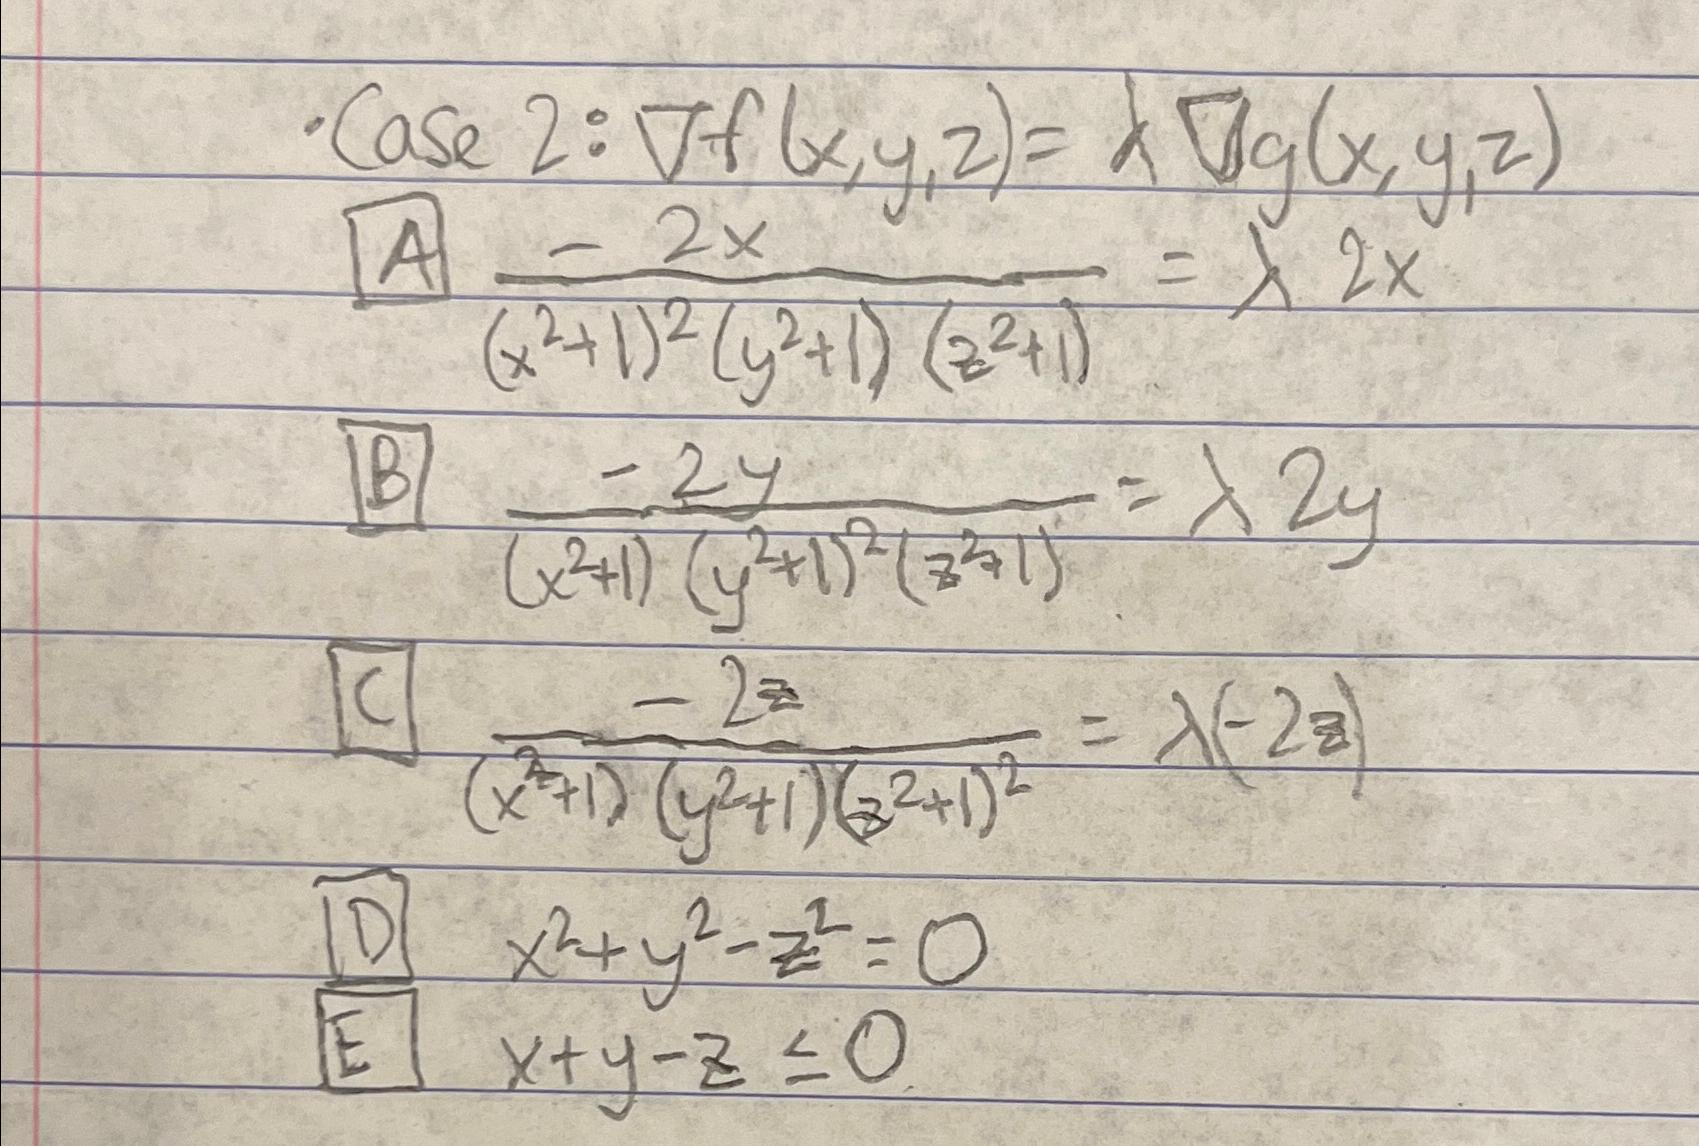 ·Case 2: ∇f(x,y,z) = λ∇g(x,y,z)
A -2x/((x²+1)²(y²+1)(z²+1)) = λ2x
B -2y/((x²+1)(y²+1)²(z²+1)) = λ2y
C -2z/((x²+1)(y²+1)(z²+1)²) = λ(-2z)
D x²+y²-z²=0
E x+y-z ≤ 0